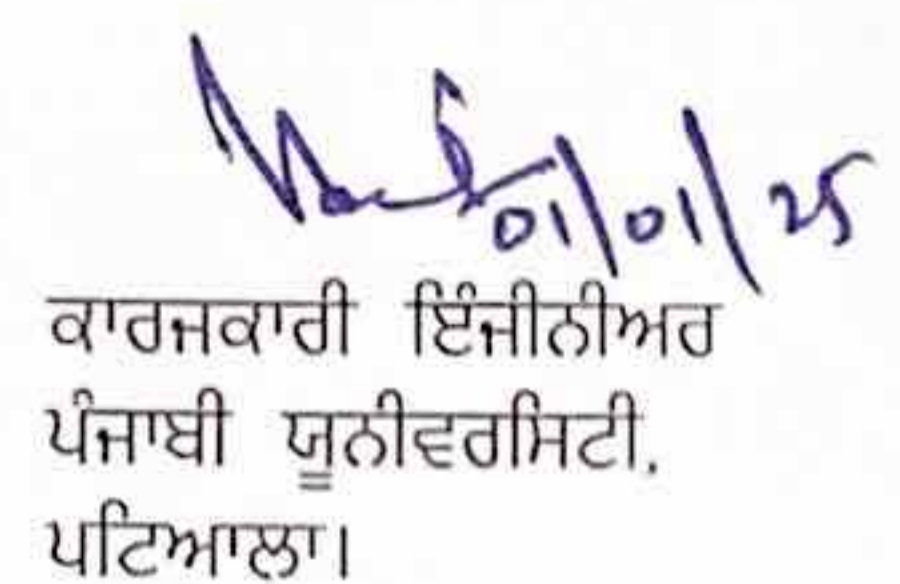 01/01/25
ਕਾਰਜਕਾਰੀ ਇੰਜੀਨੀਅਰ
ਪੰਜਾਬੀ ਯੂਨੀਵਰਸਿਟੀ.
ਪਟਿਆਲਾ।